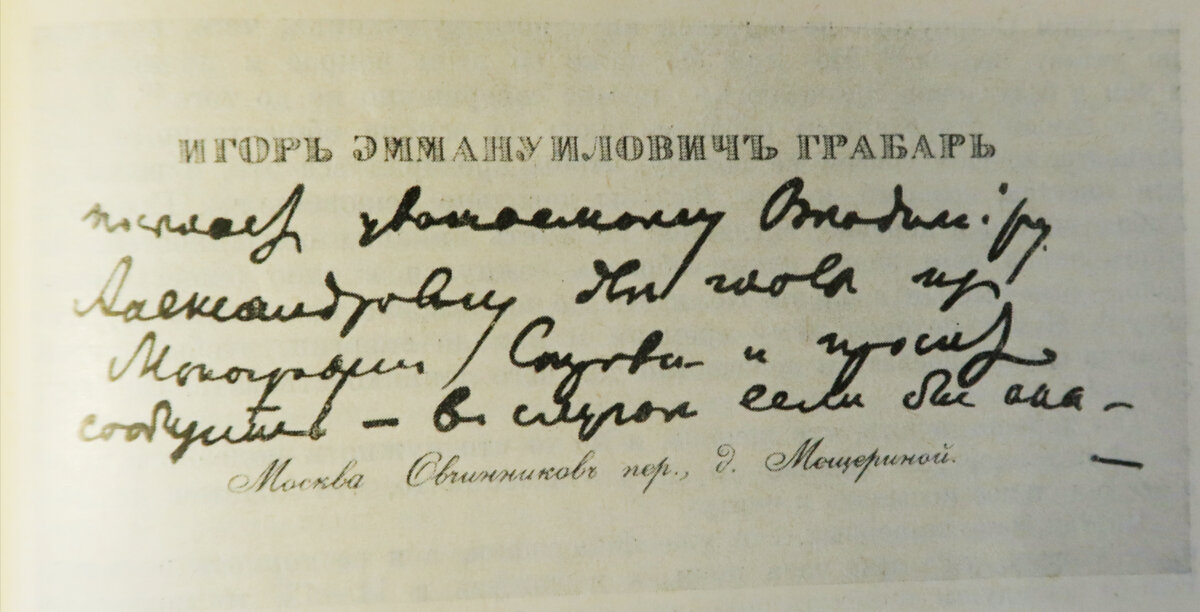 ИГОРЬ ЭММАНУИЛОВИЧЪ ГРАБАРЬ
посылает уважаемому Владимiру
Александровичу две главы из
Монографии Серова и просит
сообщить — в случае если бы ока–
Москва Овчинниковъ пер., д. Мощериной. —